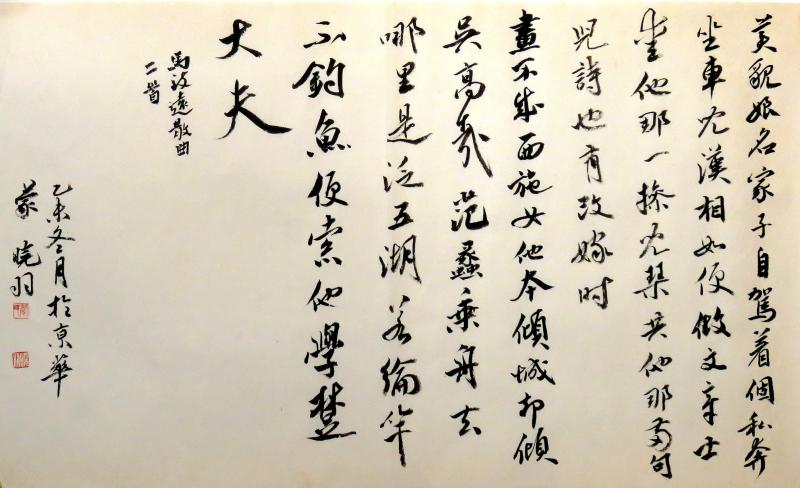 美貌娘名家子自駕着個私奔
坐車儿漢相如便做文章士
愛他那一操儿琴共他那兩句
兒詩也有改嫁时
畫不成西施女他本傾城却傾
吳高哉范蠡乘舟去
哪里是泛五湖若綸竿
不釣魚便索他學楚
大夫
馬致遠散曲
二首
乙未冬月於京華
蒙曉羽